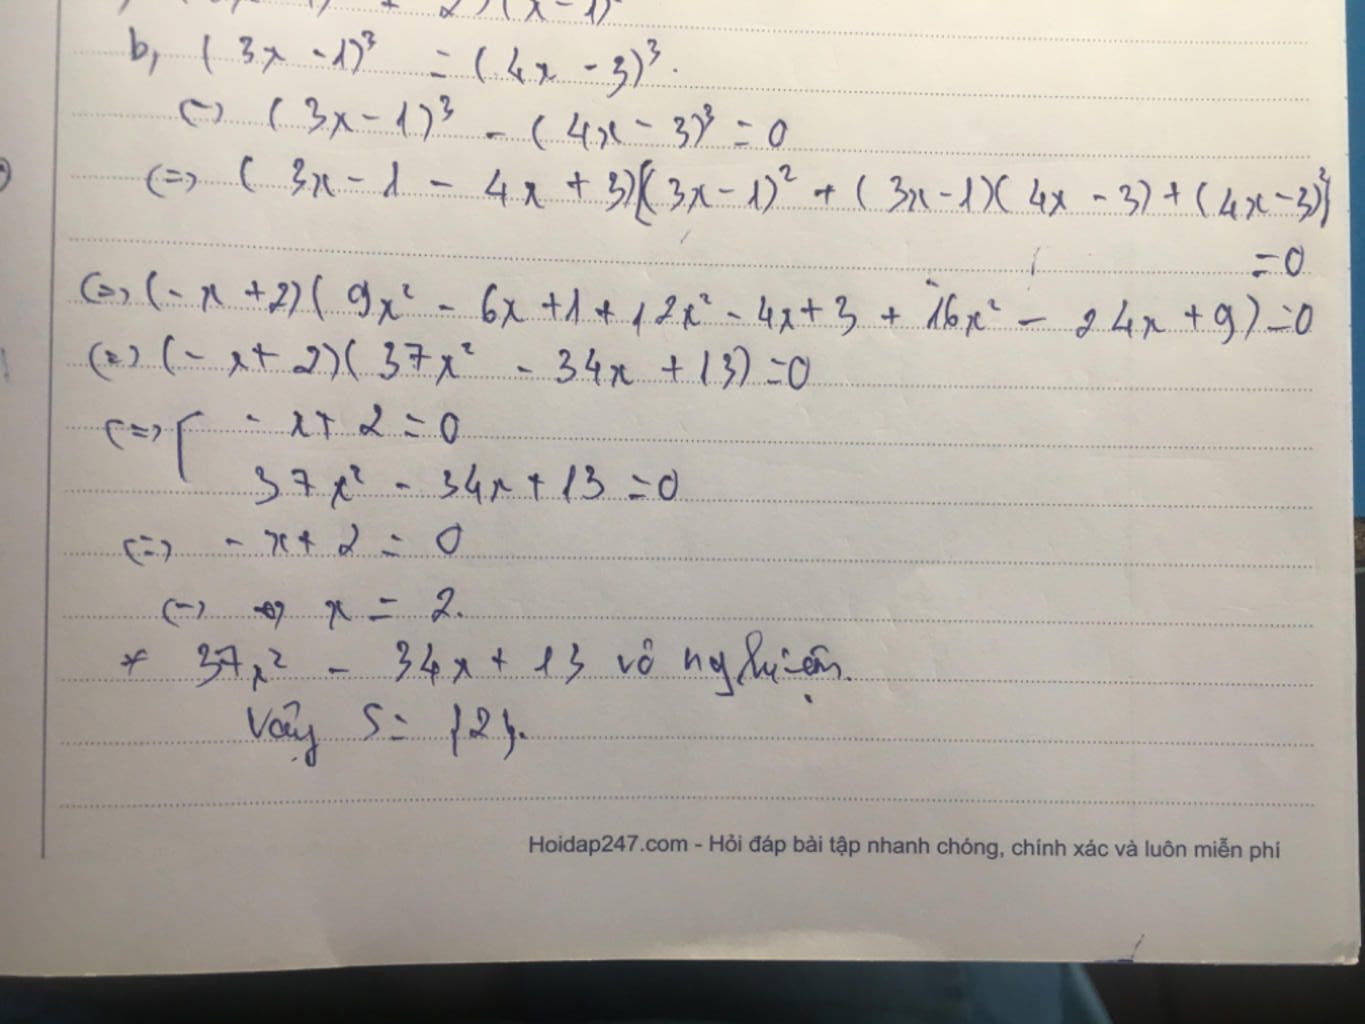 2)(x-1)²
b, (3x - 1)³ = (4x - 3)³.
(=) (3x - 1)³ - (4x - 3)³ = 0
(=) (3x - 1 - 4x + 3)[(3x - 1)² + (3x - 1)(4x - 3) + (4x - 3)²]
= 0
(=) (-x + 2)(9x² - 6x + 1 + 12x² - 4x + 3 + 16x² - 24x + 9) = 0
(=) (-x + 2)(37x² - 34x + 13) = 0
(=) [ -x + 2 = 0
37x² - 34x + 13 = 0
(=) -x + 2 = 0
(=) x = 2.
* 37x² - 34x + 13 vô nghiệm.
Vậy S = {2}.
Hoidap247.com - Hỏi đáp bài tập nhanh chóng, chính xác và luôn miễn phí